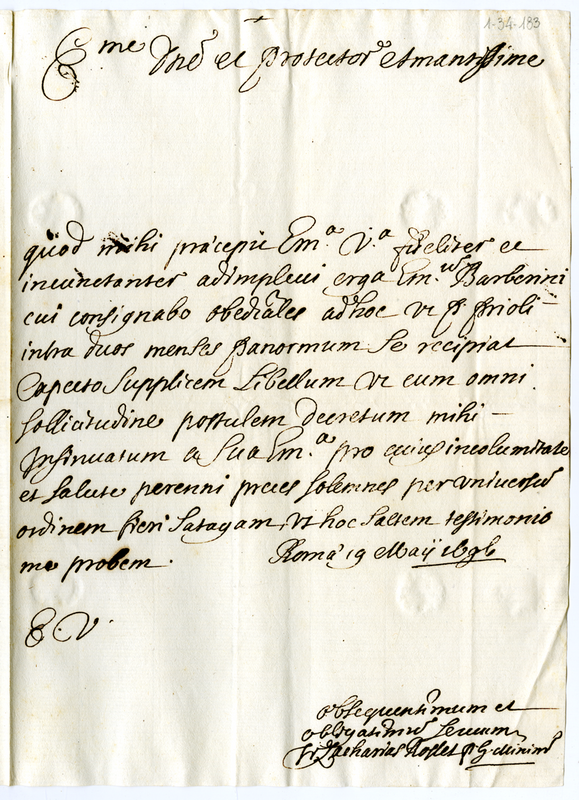 1-34-183
E.me Dne et Protector Amantissime
quod mihi præcepit Em.a V.a fideliter et
incunctanter adimplevi erga Em.um Barberini
cui consignabo obediales ad hoc ut P. Prioli
intra duos menses Panormum se recipiat
Capecto supplicem libellum ut cum omni
sollicitudine postulem decretum mihi
insinuatum a Sua Em.a pro cuius incolumitate
et salute perenni preces solemnes per universum
ordinem fieri satagam, ut hoc saltem testimonio
me probem. Roma 19 Maij 1696
E. V.
obsequentimum et
obligatimum servum
fr Zacharias Roslet G. Minim